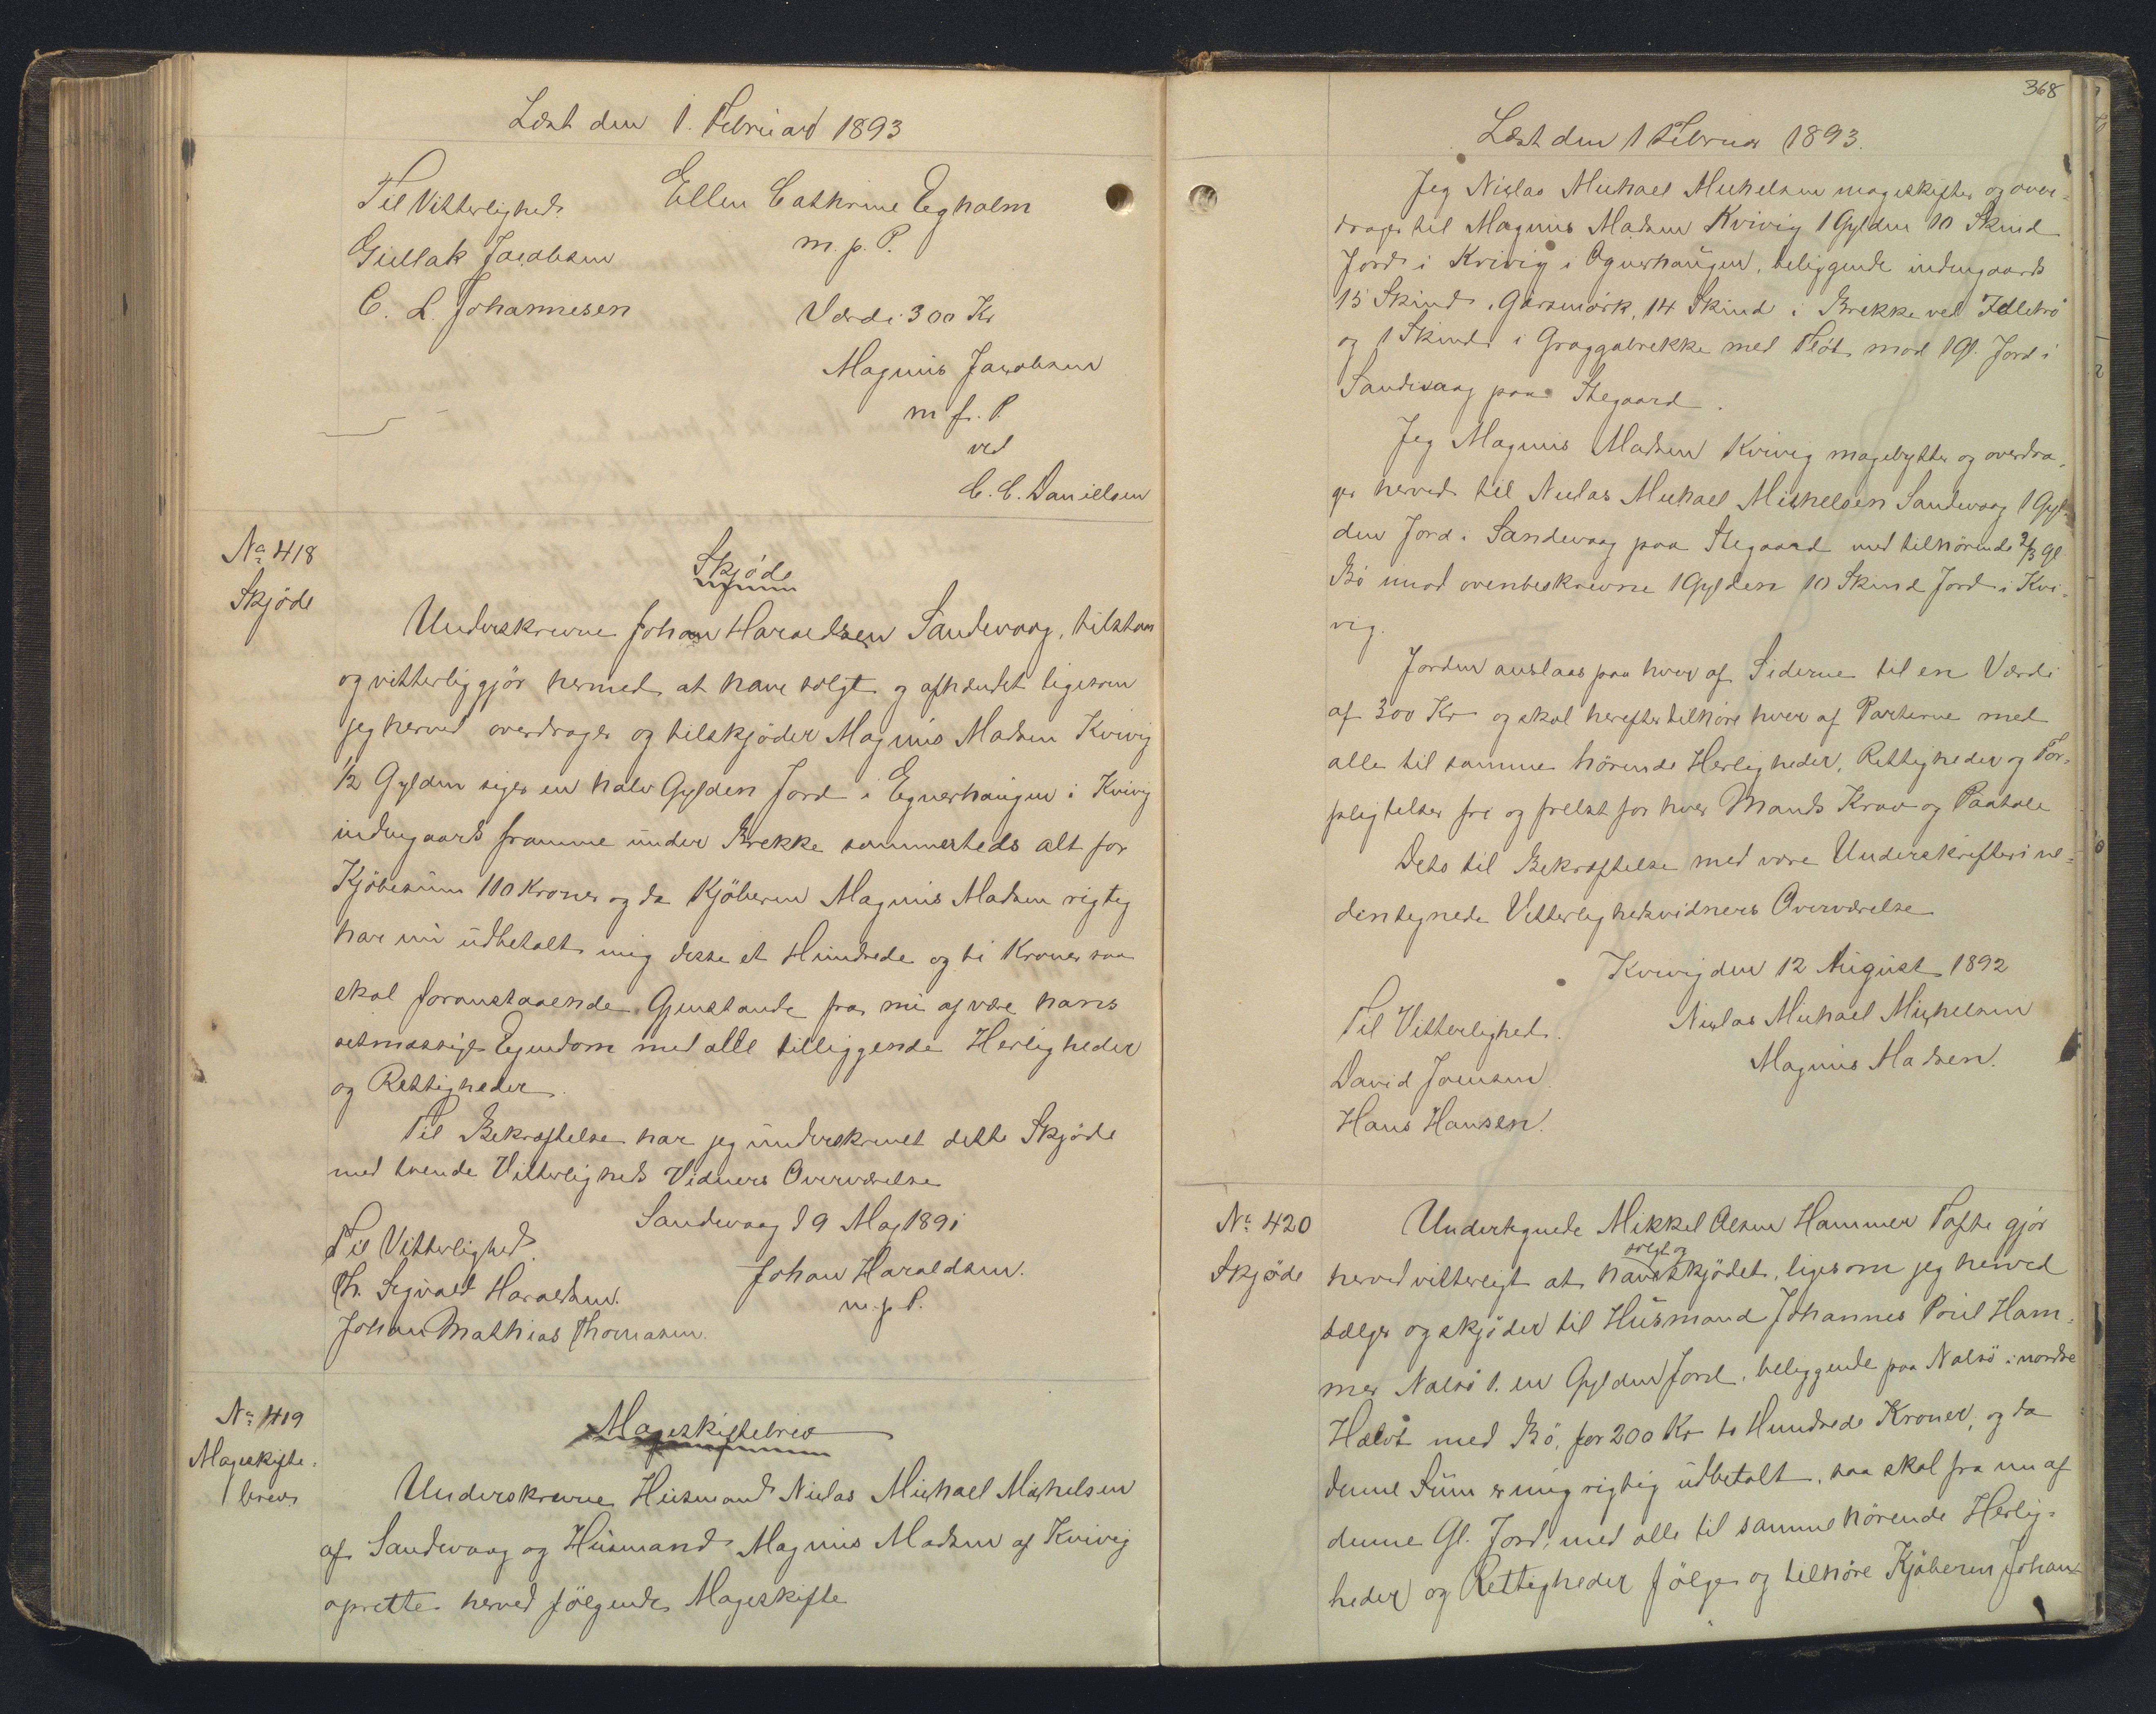 Læst den 1. Februar 1893
Til Vitterlighed
Ellen Cathrine Egholm
m. p. P.
Gullak Jacobsen
C. L. Johannesen
Værdi 300 Kr
Magnus Jacobsen
m f. P
ved
C. C. Danielsen
No 418
Skjöde
Skjöde
Underskrevne Johan Haraldsen Sandevaag, tilstaar
og vitterliggjör hermed at have solgt og afhændet ligesom
jeg herved overdrager og tilskjöder Magnus Madsen Kvivig
1/2 Gylden siger en halv Gylden Jord i Egnerhaugen i Kvivig
indengaards framme under Brekke sammesteds alt for
Kjöbesum 110 Kroner og da Kjöberen Magnus Madsen rigtig
har nu udbetalt mig disse et Hundrede og ti Kroner saa
skal foranstaaende Gjenstande fra nu af være hans
retmæssige Egendom med alle tilliggende Herligheder
og Rettigheder.
Til Bekræftelse har jeg underskrevet dette Skjöde
med tvende Vitterligheds Vidners Overværelse
Sandevaag d 9 Maj 1891
Til Vitterlighed.
Johan Haraldsen.
Th. Sigvald Haraldsen.
m. p. P.
Johan Mathias Thomasen.
No 419
Mageskifte-
brev
Mageskiftebrev
Underskrevne Husmand Niclas Michael Michelsen
af Sandevaag og Husmand Magnus Madsen af Kvivig
oprette herved fölgende Mageskifte
368
Læst den 1 Februar 1893.
Jeg Niclas Michael Michelsen mageskifter og over-
drager til Magnus Madsen Kvivig 1 Gylden 10 Skind
Jord i Kvivig i Ognerhaugen, beliggende indengaards
15 Skind i Garsmörk, 14 Skind i Brekke ved
og 1 Skind i Graggabrekke med Flöt mod 1 Gl. Jord i
Sandevaag paa Stegaard.
Jeg Magnus Madsen Kvivig magebytter og overdra-
ger herved til Niclas Michael Michelsen Sandevaag 1 Gyl-
den Jord i Sandevaag paa Stegaard med tilhörende 2/3 Gl
Bö imod ovenbeskrevne 1 Gylden 10 Skind Jord i Kvi-
vig.
Jorden anslaas paa hver af Siderne til en Værdi
af 300 Kr og skal herefter tilhöre hver af Parterne med
alle til samme hörende Herligheder, Rettigheder og For-
pligtelser fri og frelst for hver Mands Krav og Paatale
Dets til Bekræftelse med vore Underskrifter i ne-
dentegnede Vitterlighedsvidners Overværelse
Kvivig den 12 August 1892
Til Vitterlighed.
Niclas Michael Michelsen
David Joensen
Magnus Madsen.
Hans Hansen.
No 420
Skjöde
Undertegnede Mikkel Olsen Hammer Tofte gjör
herved vitterligt at have solgt og skjödet, ligesom jeg herved
sælger og skjöder til Husmand Johannes Poul Ham-
mer Nolsö 1. en Gylden Jord, beliggende paa Nolsö i nordre
Halvt med Bö, for 200 Kr to Hundrede Kroner, og da
denne Sum er mig rigtig udbetalt, saa skal fra nu af
denne Gl. Jord, med alle til samme hörende Herlig-
heder og Rettigheder fölge og tilhöre Kjöberen Johan-